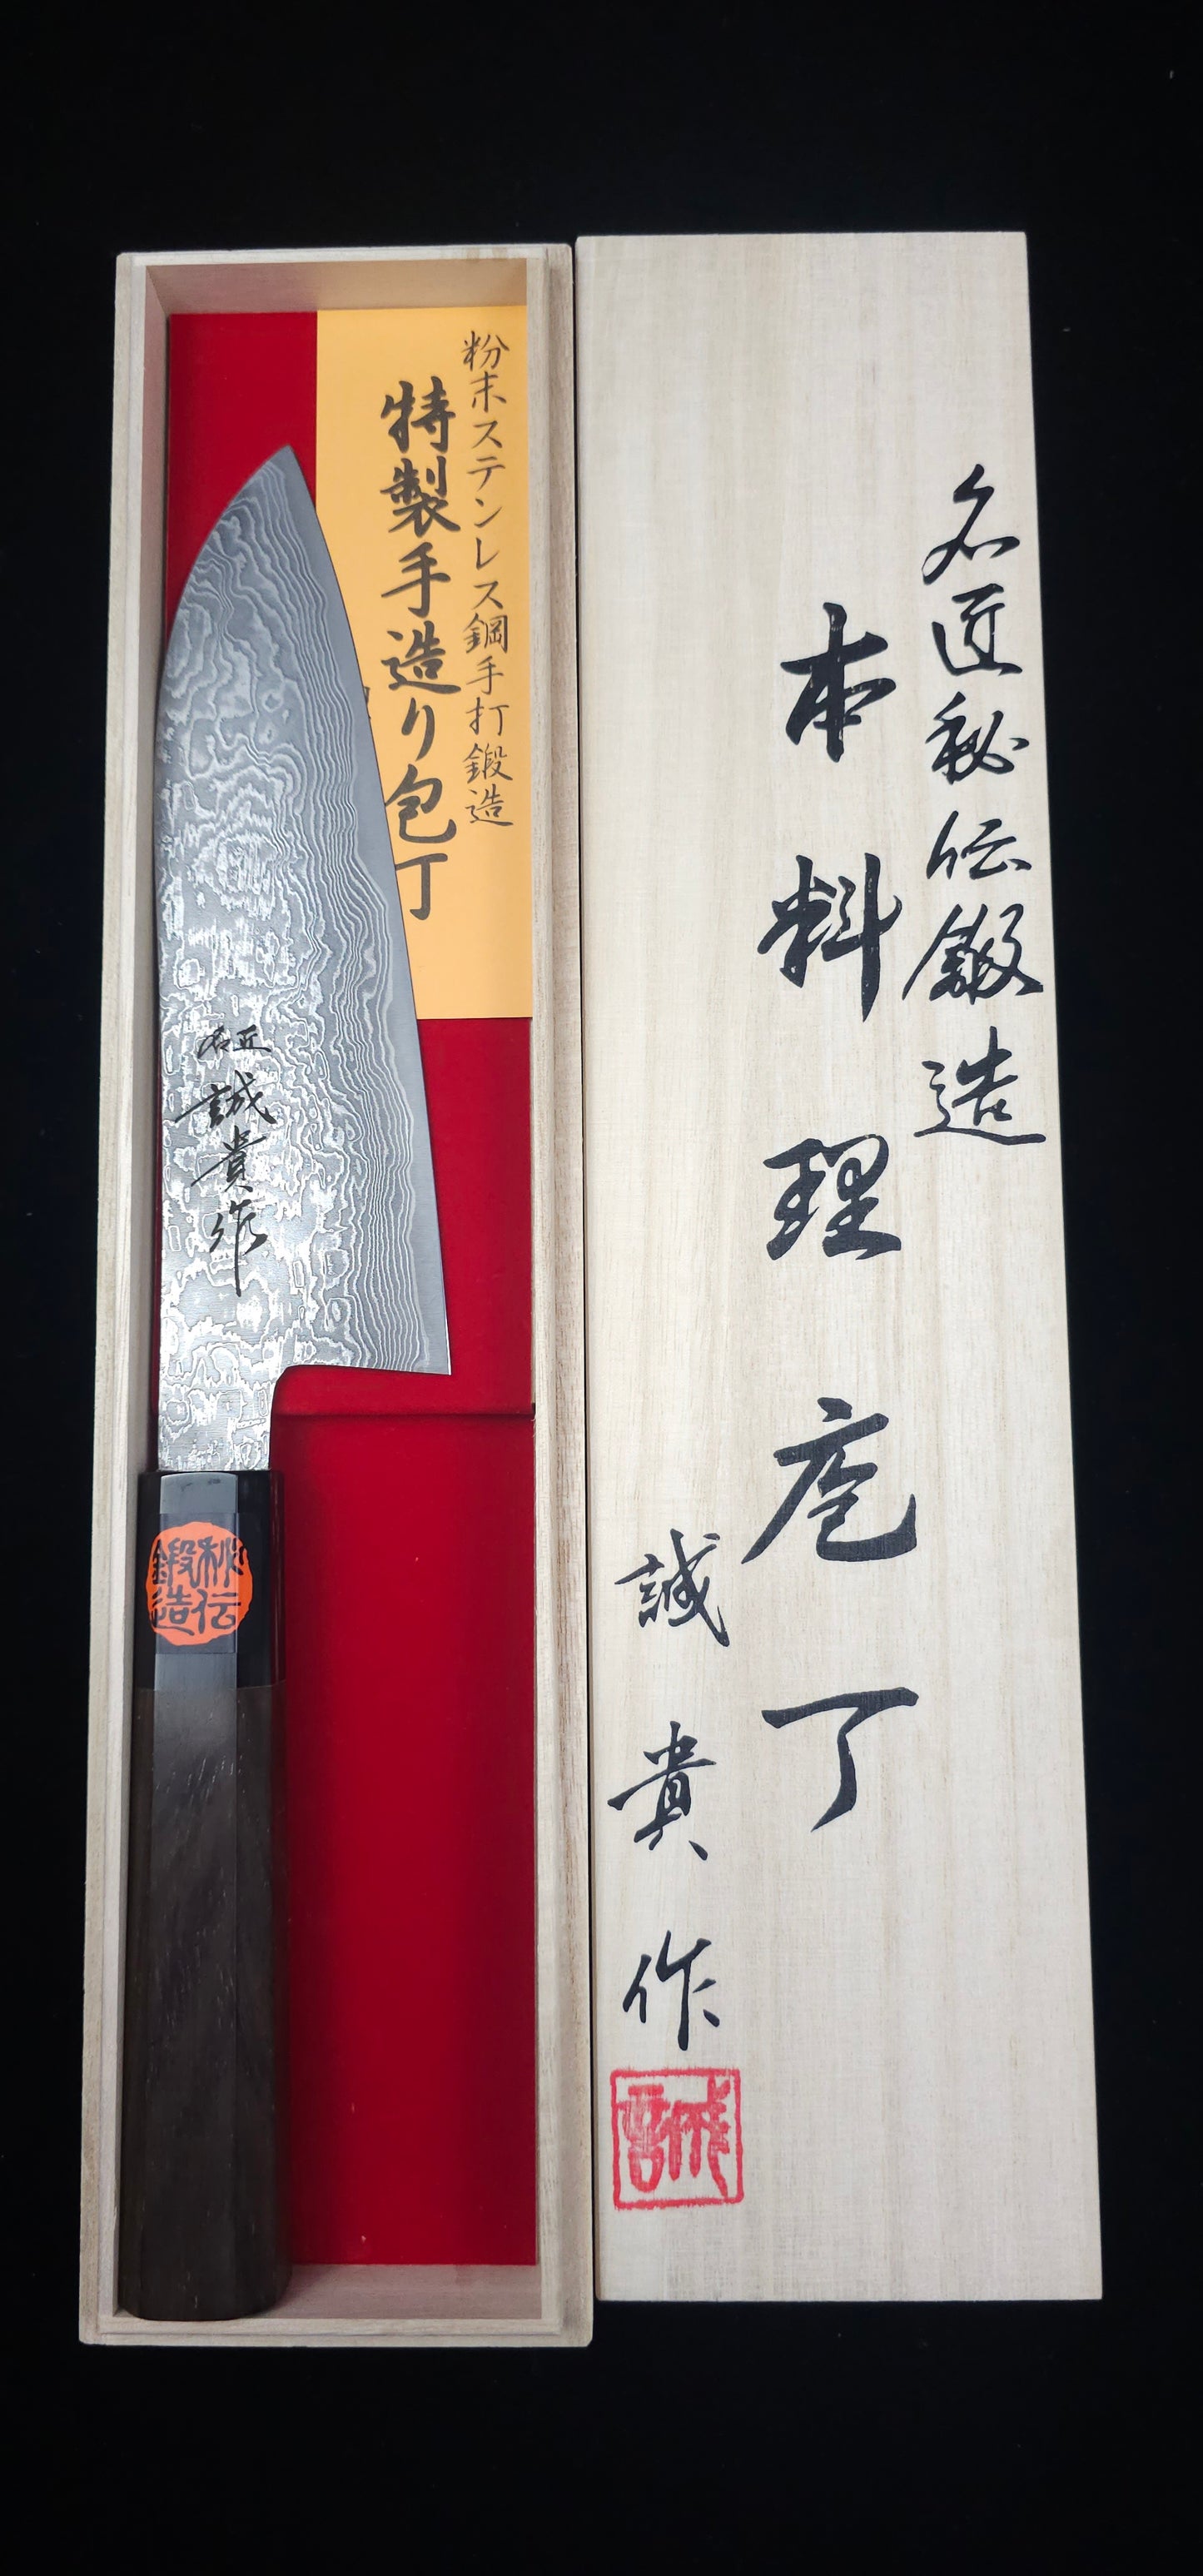 粉末ステンレス鋼手打鍛造
特製手造り包丁
名匠
誠貴作
秘伝
鍛造
名匠秘伝鍛造
本料理庖丁
誠貴作
誠